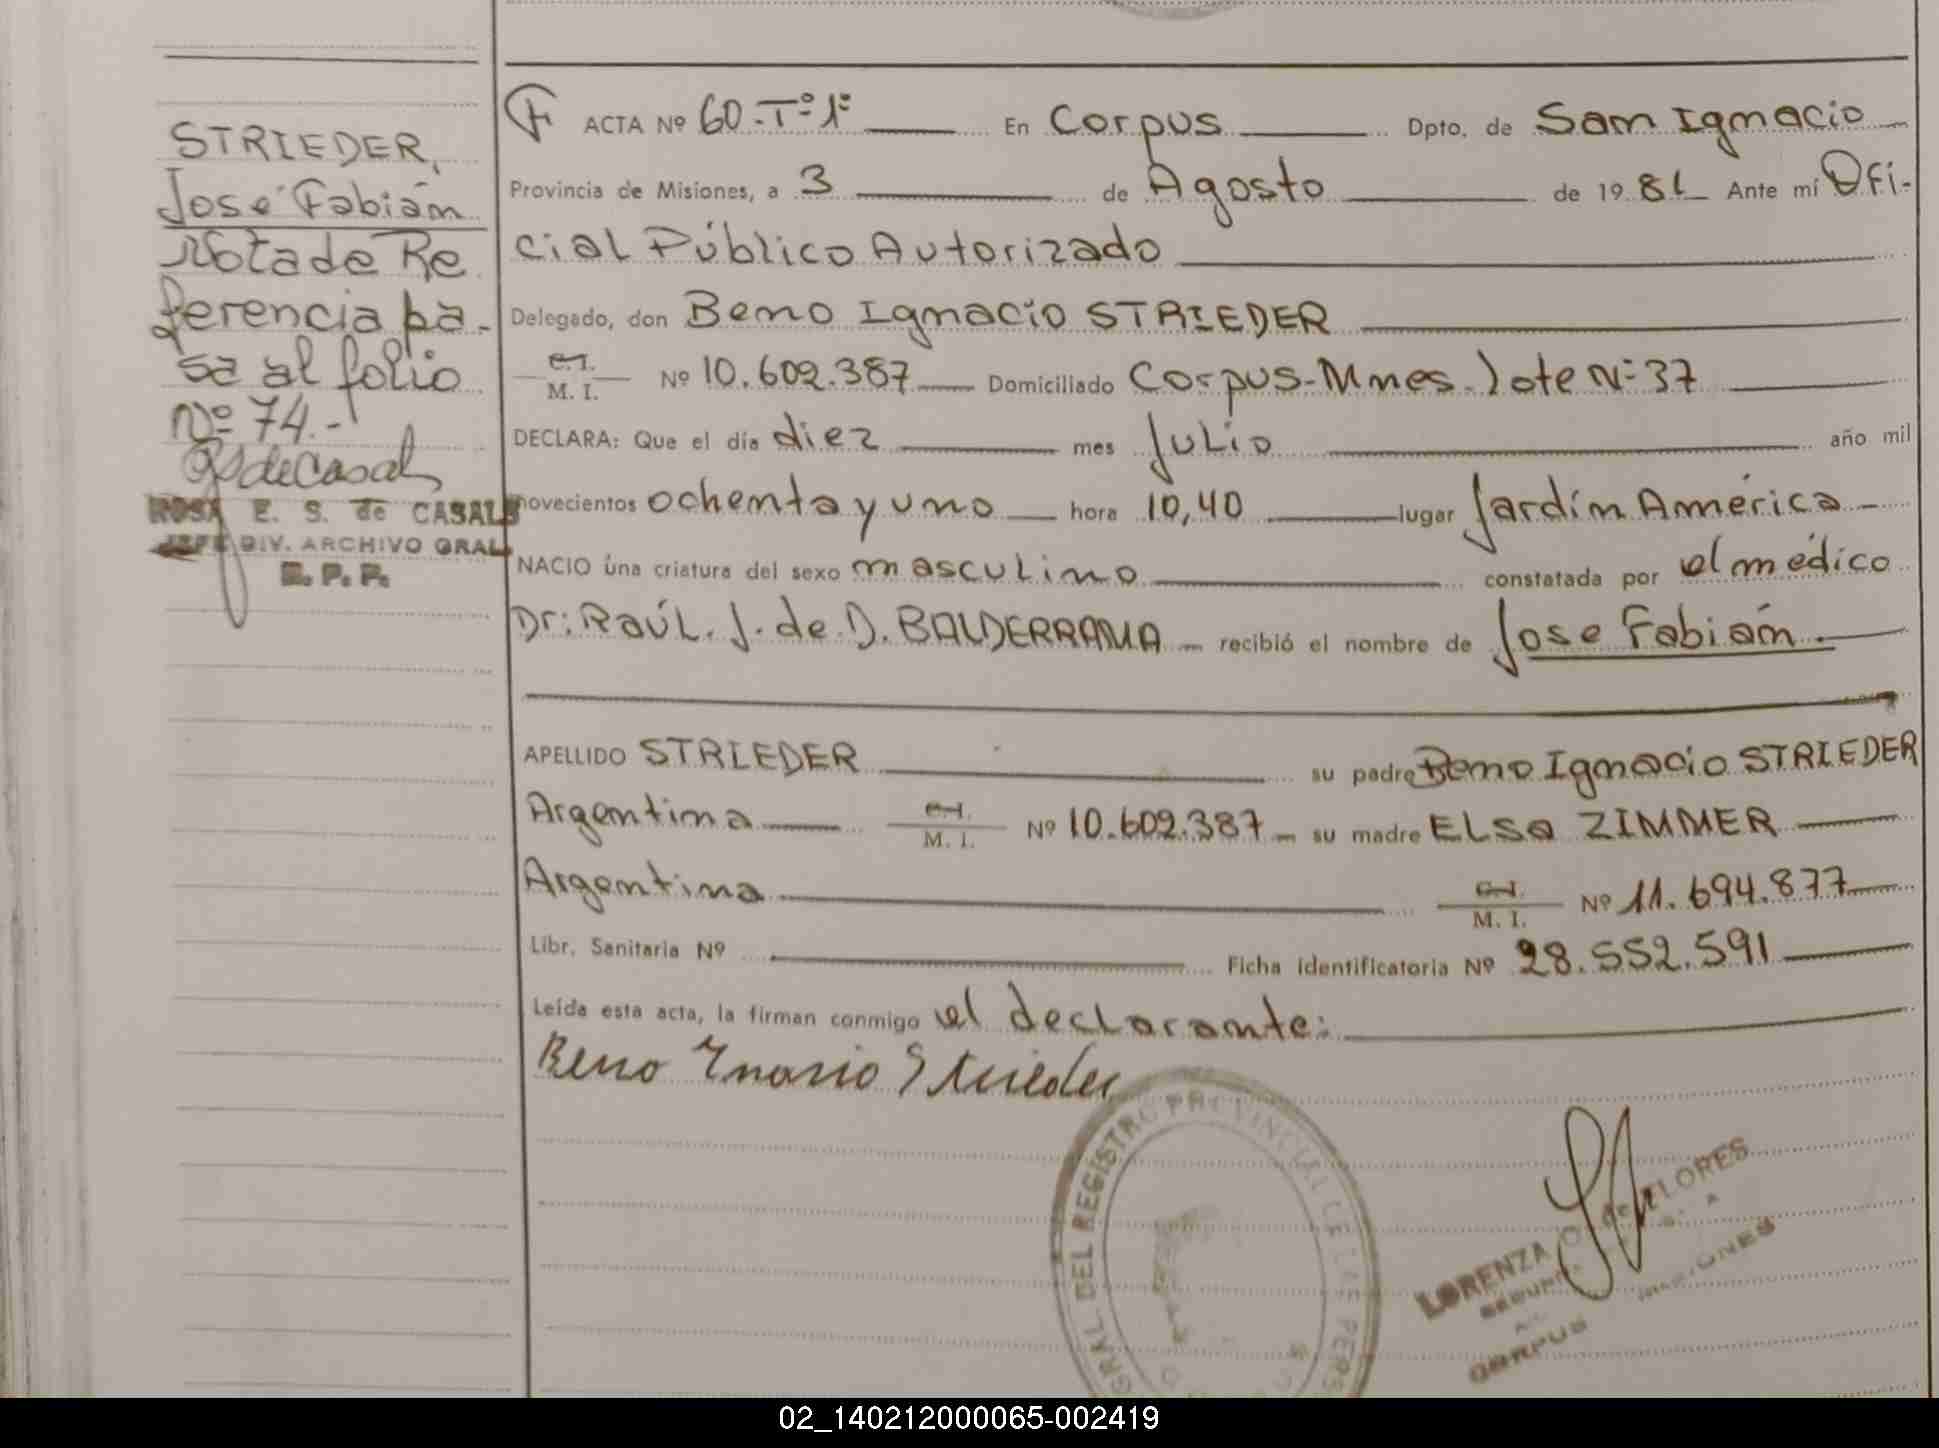 STRIEDER,
José Fabián
Nota de Re
ferencia pa-
sa al folio
Nº 74.-
RSdeCasals
ROSA E. S. de CASALS
JEFE DIV. ARCHIVO GRAL.
R. P. P.
F ACTA Nº 60-Tº1º En Corpus Dpto. de San Ignacio
Provincia de Misiones, a 3 de Agosto de 1981 Ante mí Ofi-
cial Público Autorizado
Delegado, don Beno Ignacio STRIEDER
C.I.
M. I. Nº 10.602.387 Domiciliado Corpus-Mnes. lote Nº 37
DECLARA: Que el día diez mes Julio año mil
novecientos ochenta y uno hora 10,40 lugar Jardín América
NACIO úna criatura del sexo masculino constatada por el médico
Dr: Raúl. J. de D. BALDERRAMA recibió el nombre de Jose Fabián
APELLIDO STRIEDER su padre Beno Ignacio STRIEDER
Argentina C.I.
M. I. Nº 10.602.387 su madre ELSA ZIMMER
Argentina C.I.
M. I. Nº 11.694.877
Libr. Sanitaria Nº Ficha identificatoria Nº 28.552.591
Leída esta acta, la firman conmigo el declarante:
Beno Inasio Strieder
GRAL. DEL REGISTRO PROVINCIAL DE LAS PERS
LORENZA O. de FLORES
CORPUS MISIONES
02_140212000065-002419